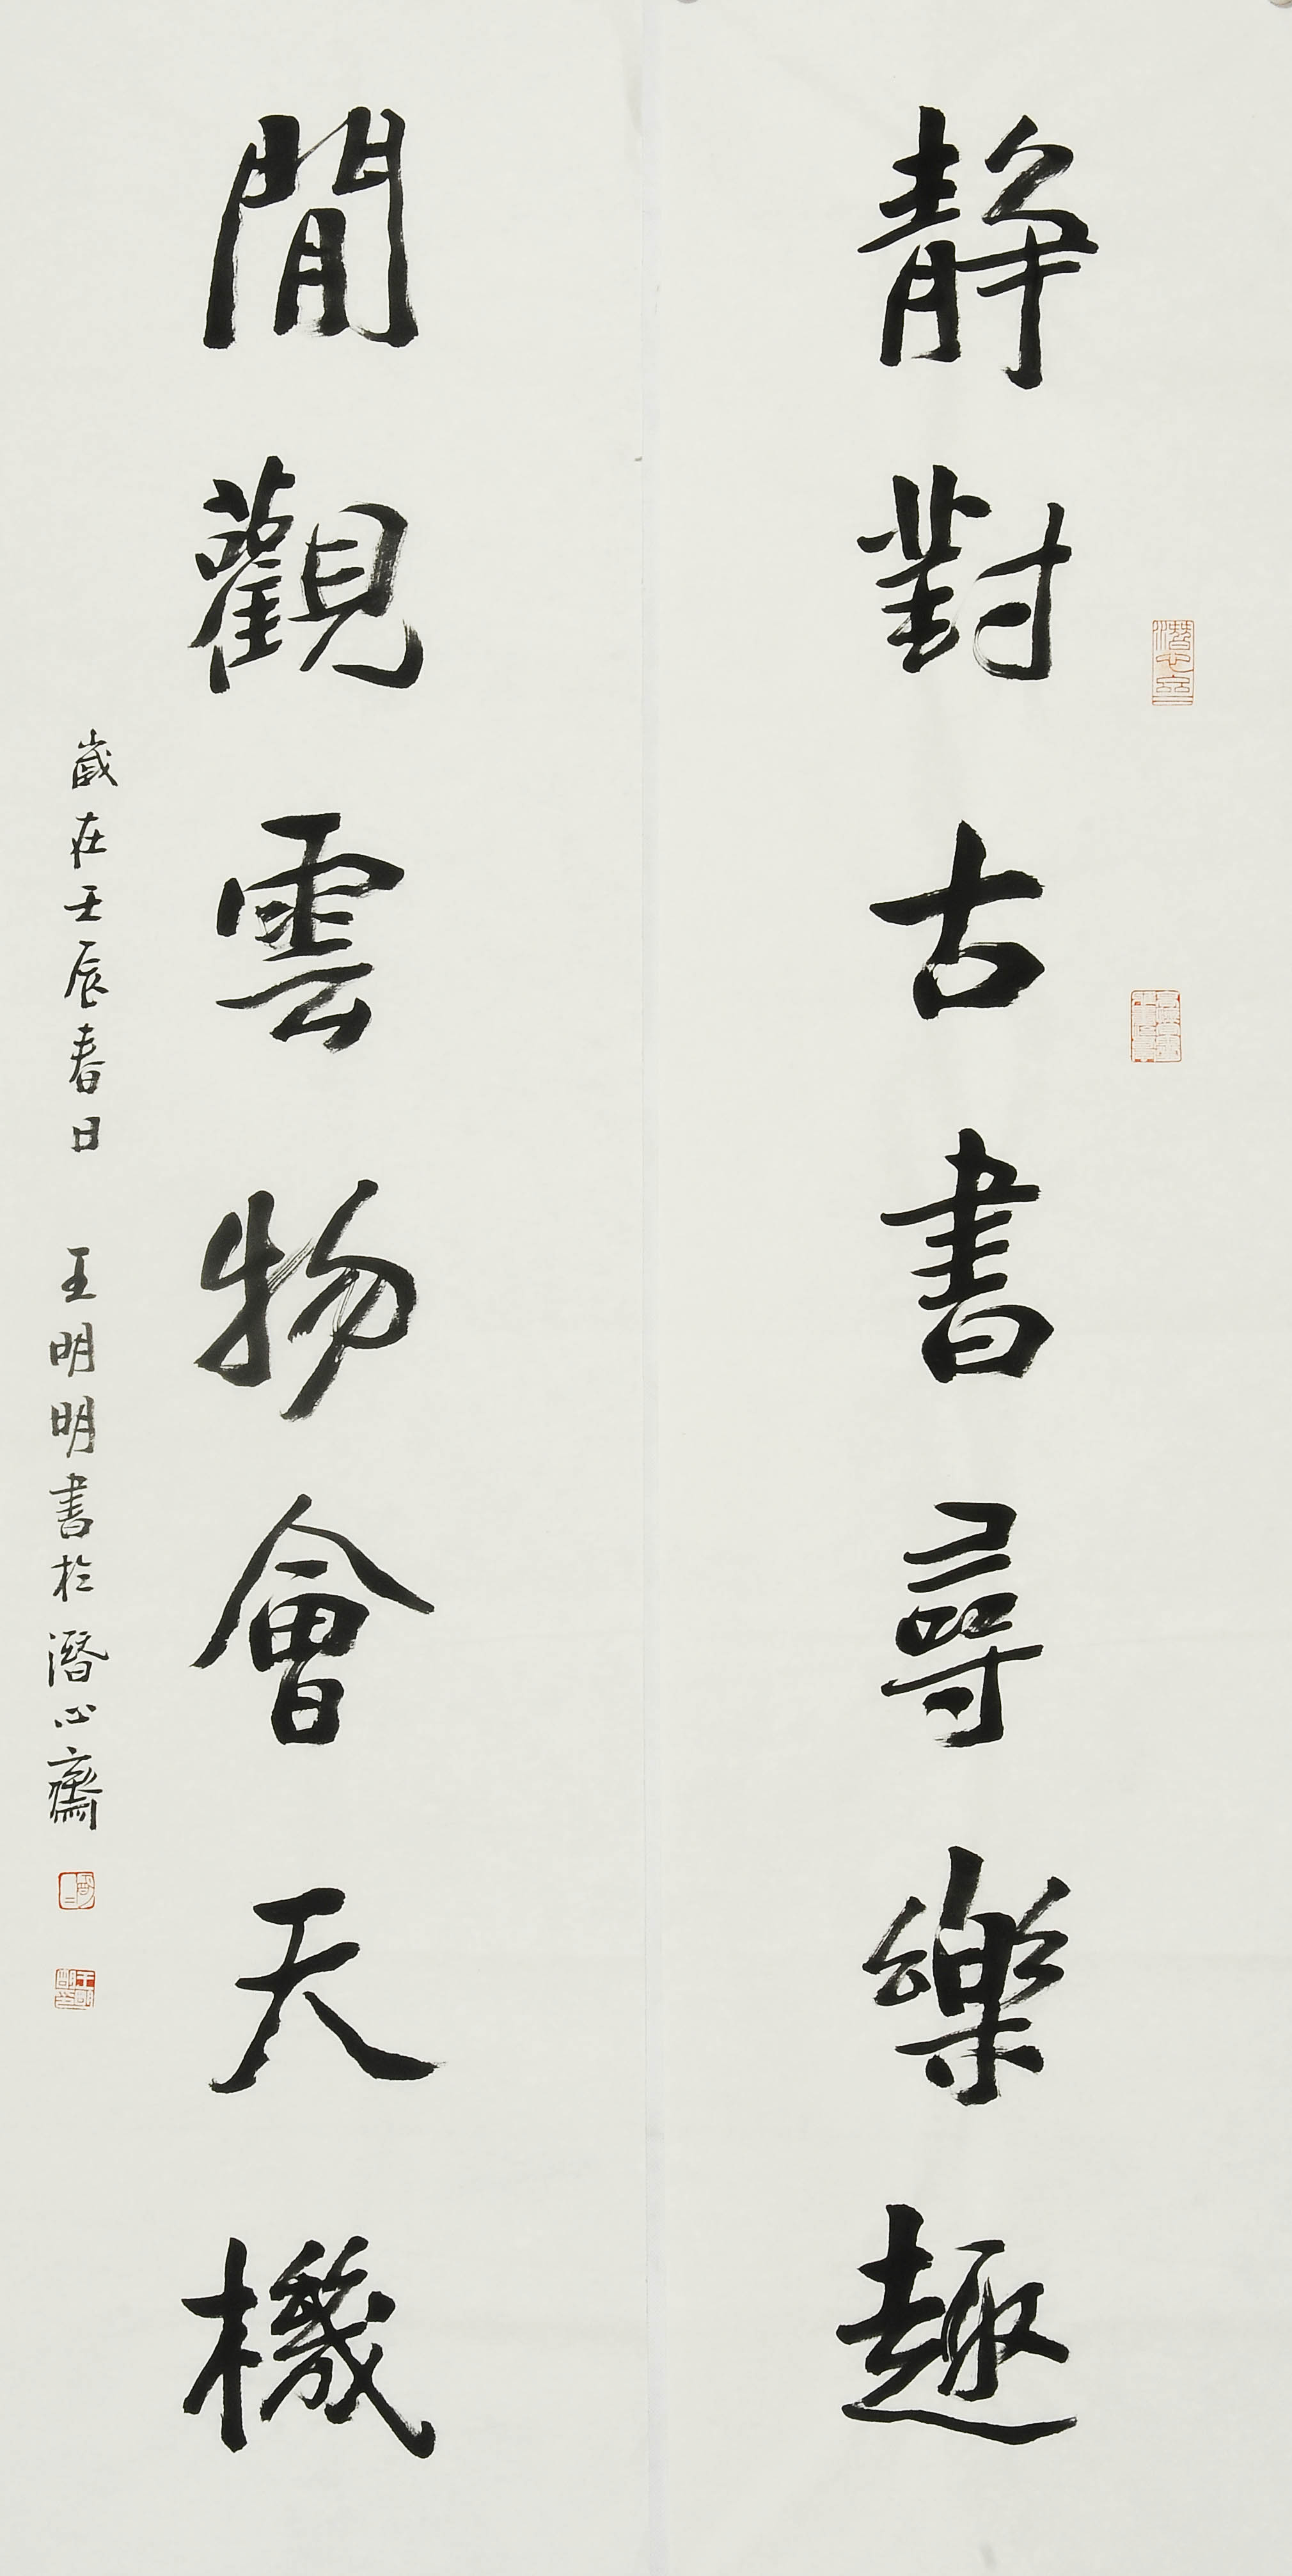 静對古書尋樂趣
閒觀雲物會天機
歲在壬辰春日 王明明書於潛心齋
潛心齋